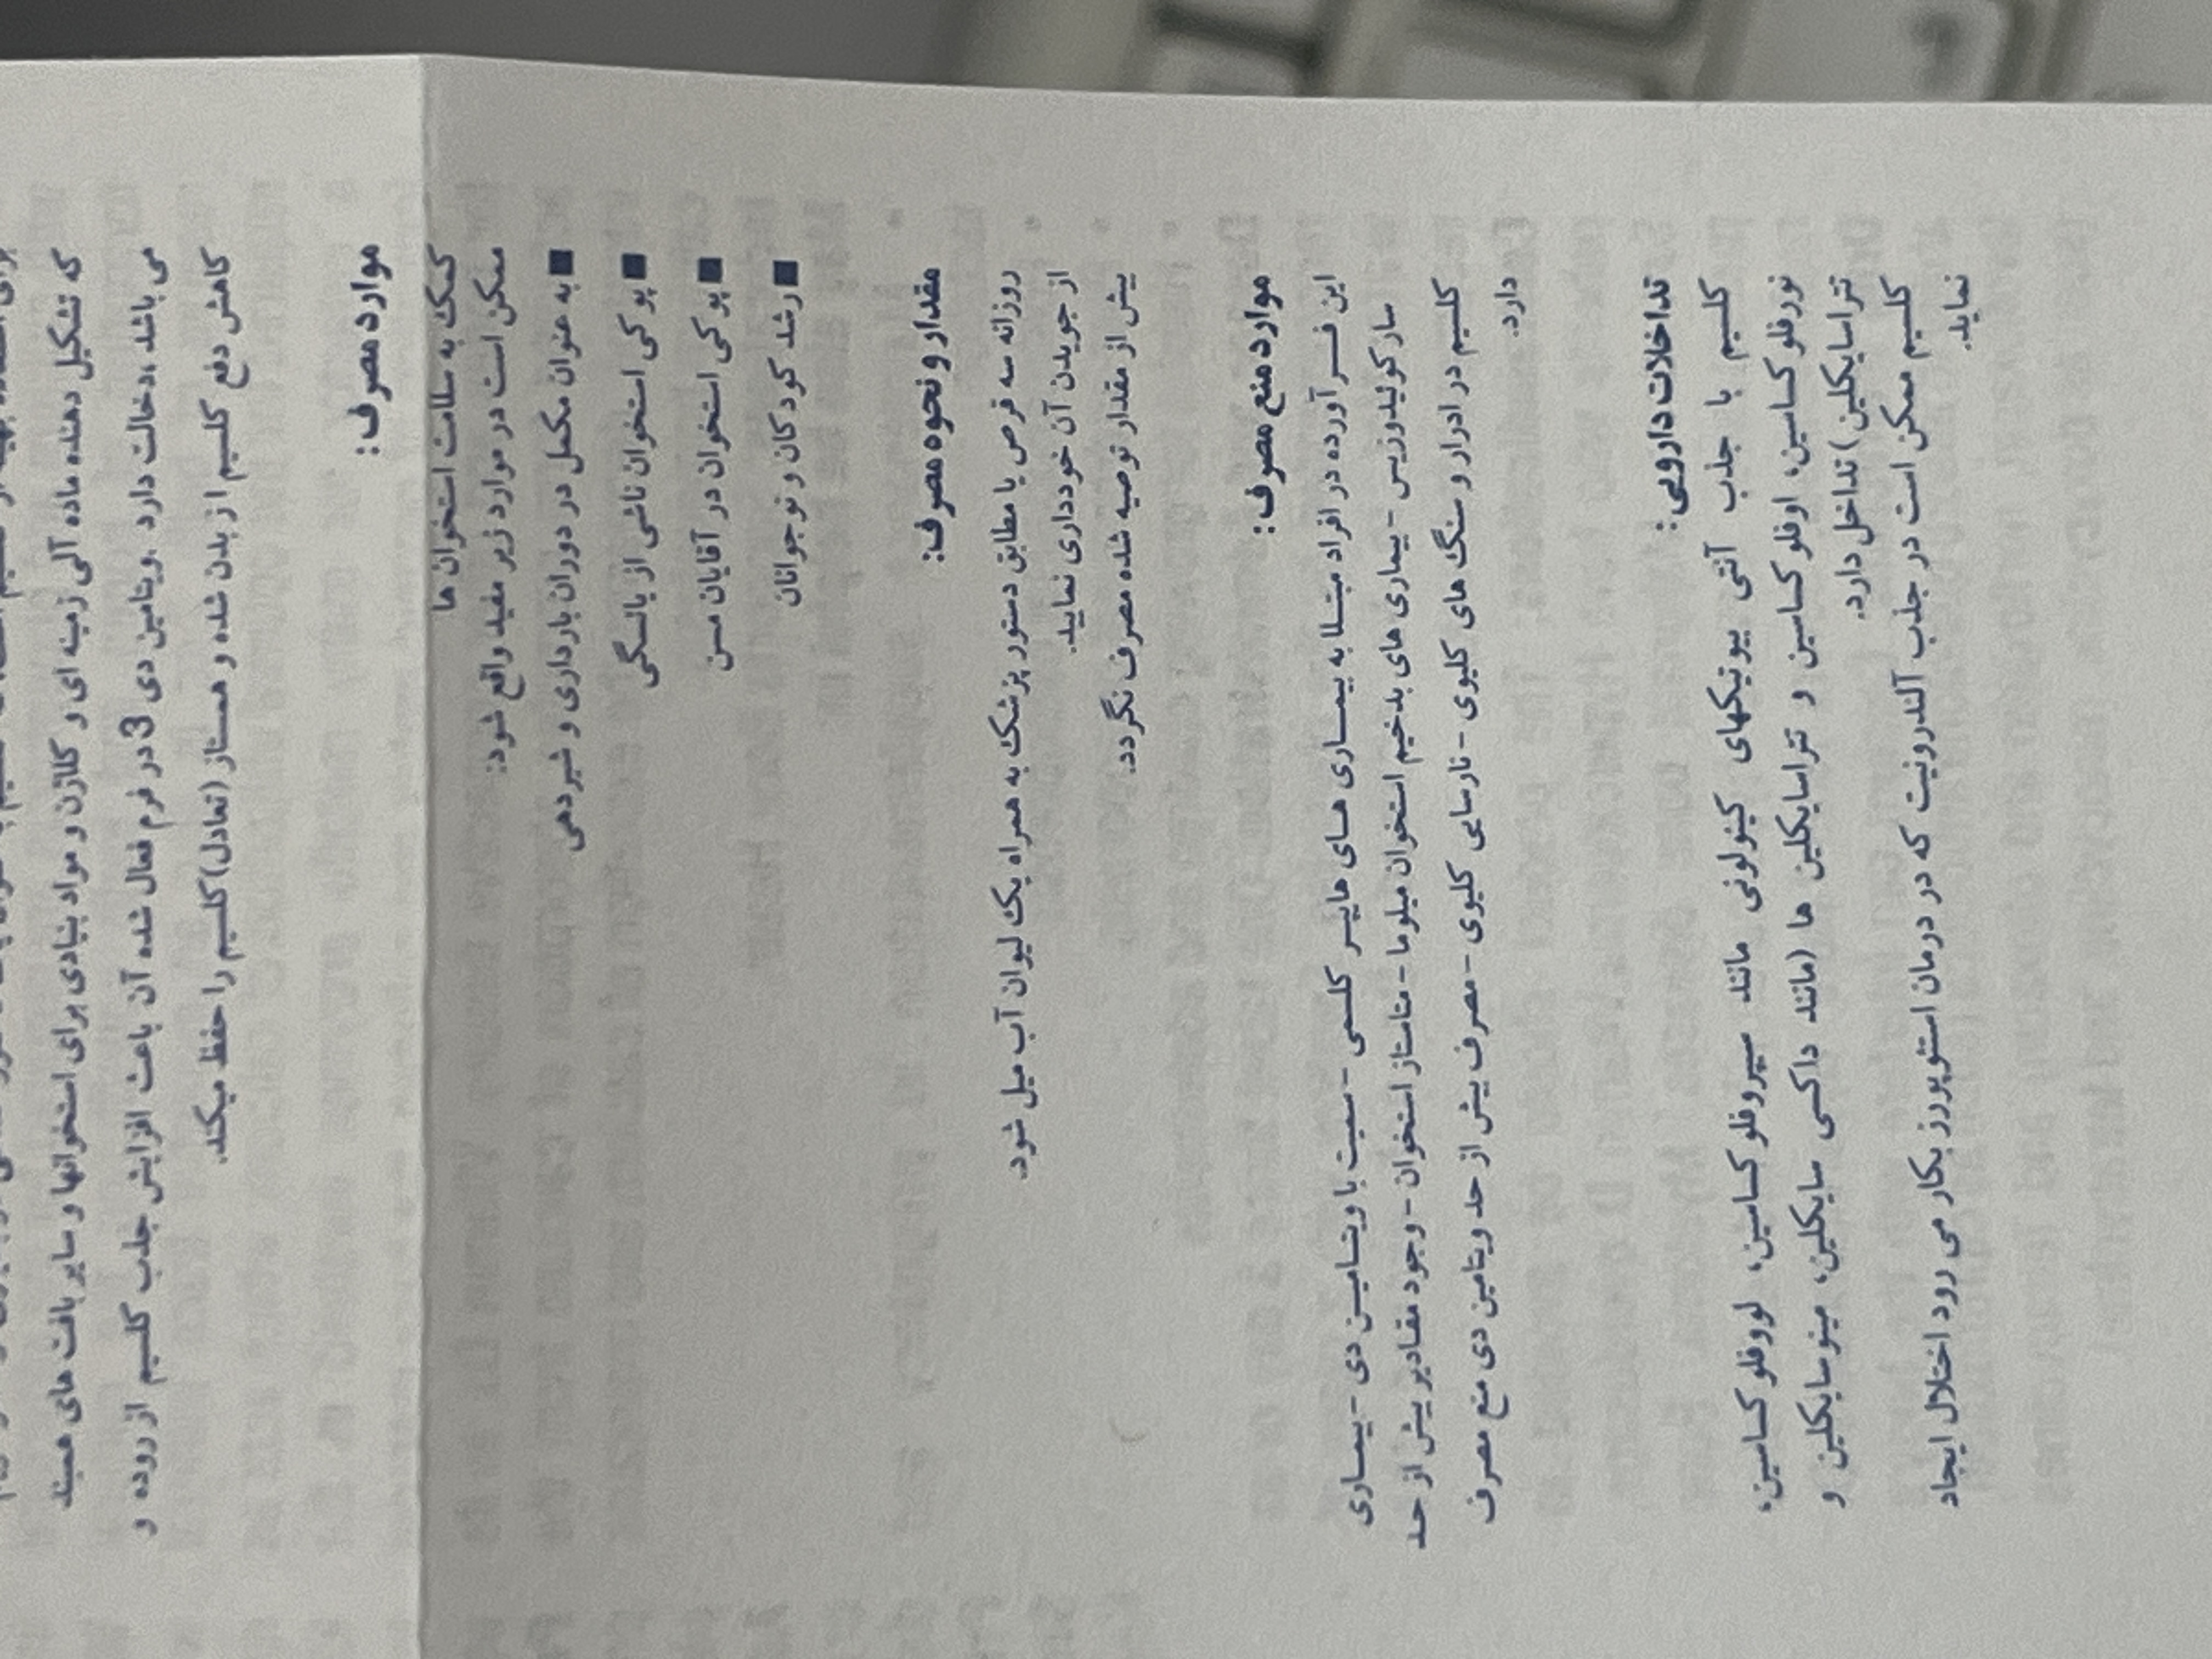 که تشکیل دهنده ماده آلی زمینه ای و کلاژن و مواد بنیادی برای استخوانها و سایر بافت های همبند
می باشد ،دخالت دارد .ویتامین دی 3 در فرم فعال شده آن باعث افزایش جذب کلسیم از روده و
کاهش دفع کلسیم از بدن شده و همستاز (تعادل) کلسیم را حفظ میکند.
موارد مصرف :
کمک به سلامت استخوان ها
ممکن است در موارد زیر مفید واقع شود:
■ به عنوان مکمل در دوران بارداری و شیردهی
■ پوکی استخوان ناشی از یائسگی
■ پوکی استخوان در آقایان مسن
■ رشد کودکان و نوجوانان
مقدار و نحوه مصرف:
روزانه سه قرص یا مطابق دستور پزشک به همراه یک لیوان آب میل شود.
از جویدن آن خودداری نمایید.
بیش از مقدار توصیه شده مصرف نگردد.
موارد منع مصرف :
این فـــرآورده در افراد مبتـــلا به بیمـــاری هـــای هایپـــر کلسمی - سمیت با ویتـــامیـــن دی - بیمـــاری
سارکوئیدوزیس - بیماری های بدخیم استخوان میلوما - متاستاز استخوان - وجود مقـادیر بیش از حد
کلسیم در ادرار و سنگ های کلیوی - نارسایی کلیوی - مصرف بیش از حد ویتامین دی منع مصرف
دارد.
تداخلات دارویی :
کلسیم با جذب آنتی بیوتیکهای کینولونی مانند سیپروفلوکساسین، لووفلوکساسین،
نورفلوکساسین، اوفلوکساسین و تتراسایکلین ها (مانند داکسی سایکلین، مینوسایکلین و
تتراسایکلین) تداخل دارد.
کلسیم ممکن است در جذب آلندرونیت که در درمان استئوپورز بکار می رود اختلال ایجاد
نماید.